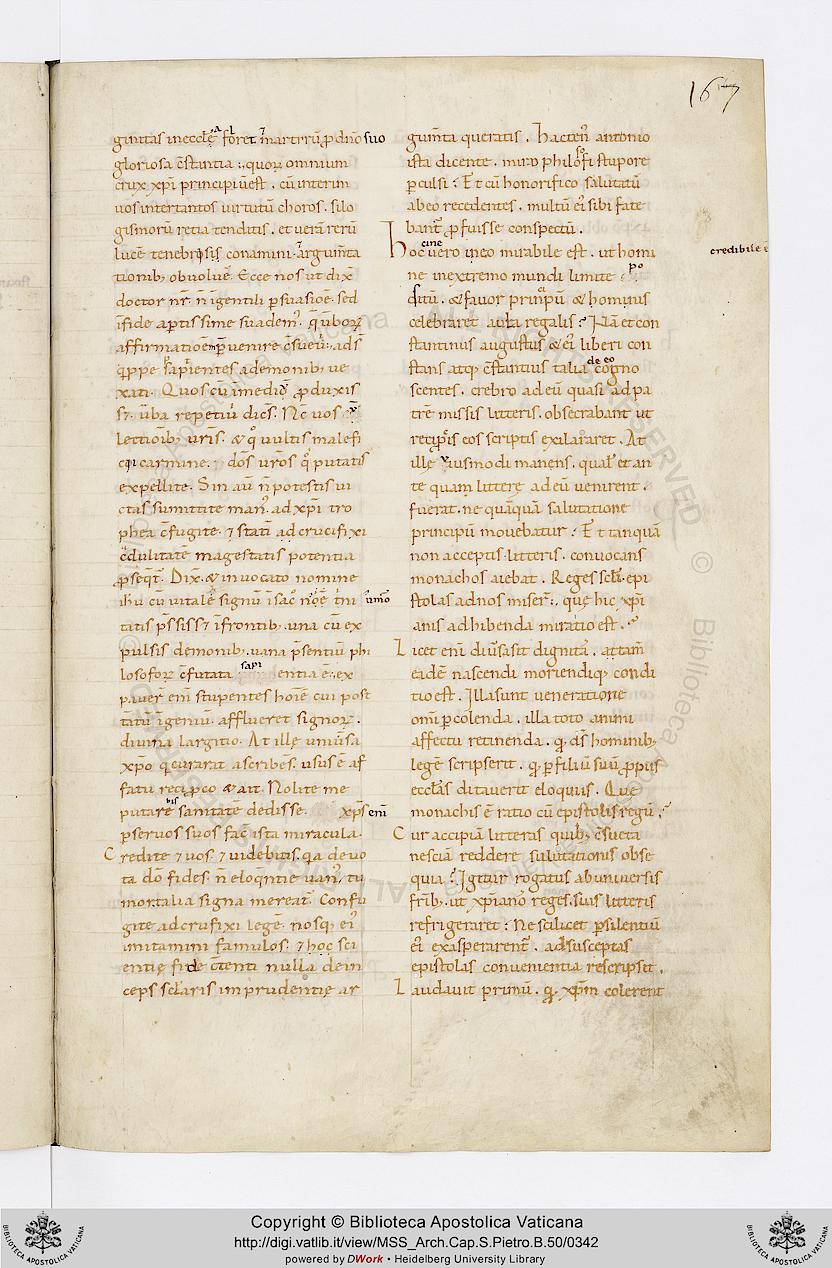 167
ginitas inecclē floret martirū p dn̄o suo
gloriosa c̄stantia; quorꝝ omnium
crux xp̄i principiū est. cū interim
uos intertantos uirtutū choros. silo
gismorū retia tenditis. et uerā rerū
lucē tenebrosis conamini argum̄ta
tionib; obuoluē. Ecce nos ut dix̄
doctor nr̄. n̄ igentili p suasiōe. sed
īfide aptissime suadem;
affirmatiōe puenire c̄sueu; ads̄
qppe sapientes ademonib; ue
xati. Quos cū inmediō pduxis
repetiū dic̄s. Nc̄ uos
lectioib; urīs. & uultis malefi
carmine. dōs uros putatis
expellite. Sin aū n̄ potestis ui
ctas sumittite man; ad xp̄i tro
phea c̄fugite. ⁊ stati adcrucifixi
c̄dulitatē magestatis potentia
pseqt̄. Dix̄. & inuocato nomine
ihū cū uitalē signū īsac̄ t̄ni
tatis p̄ssiss; īfrontib; una cū ex
pulsis demonib; uana p̄sentiū phi
losoforꝝ c̄futata sapientia ē; ex
pauer̄ eni stupentes hoiē cui post
tātū īgeniū afflueret signorꝝ.
diuina largitio. At ille uniūsa
xp̄o curarat ascribēs. usus ē af
fatu recipco & ait. Nolite me
putare bis sanitatē dedisse. xp̄s eni
p seruos suos fac̄ ista miracula.
Credite ⁊ uos. ⁊ uidebitis. qa deuo
ta dō fides. n̄ eloqntie uan; tu
mortalia signa mereat̄. Confu
gite adcrufixi legē. nosq; ei;
imitamini famulos. ⁊ hoc sci
entie fide c̄tenti nulla dein
ceps sclaris imprudentie ar
gum̄ta queratis. Hacten; antonio
ista dicente. miro philosofi stupore
p culsi; Et cū honorifico salutatū
abeo recedentes. multū ei sibi fate
bant̄ pfuisse conspectū.
Hoccine uero ineo mirabile est. ut homi credibile ē
ne inextremo mundi limite po
situ. & fauor prinpū & hominis
celebraret aula regalis; Nā et con
stantinus augustus & ei; liberi con
stans atq; c̄stantius talia de eo cogno
scentes. crebro ad eū quasi ad pa
trē missis litteris. obsecrabant ut
recipis eos scriptis exilararet. At
ille eiusmodi manens. qual; et an
te quam littere ad eū uenirent.
fuerat. ne quāquā salutatione
principū mouebatur; Et tanquā
non acceptis litteris. conuocans
monachos aiebat. Reges scl̄i epi
stolas ad nos miser̄; que hic xp̄i
anis adhibenda miratio est.
Licet eni diūsasit dignitā. attam̄
eidē nascendi moriendiq; condi
tio est. Illa sunt ueneratione
omi p colenda. illa toto animi
affectu retinenda. q. ds̄ hominib;
legē scripserit. q. p filiū suū ppiis
ecclās ditauerit eloquiis. Que
monachis ē ratio cū epistolis regū.
Cur accipiā litteras quib; c̄sueta
nesciā reddere salutationis obse
quia; Igitur rogatus abuniuersis
frīb; ut xp̄ianos reges. suis litteris
refrigeraret; Ne scilicet p silentiū
ei exasperarent̄. ad susceptas
epistolas conuenientia rescripsit.
Laudauit primū. q. xp̄m colerent
Copyright © Biblioteca Apostolica Vaticana
http://digi.vatlib.it/view/MSS_Arch.Cap.S.Pietro.B.50/0342
powered by DWork • Heidelberg University Library